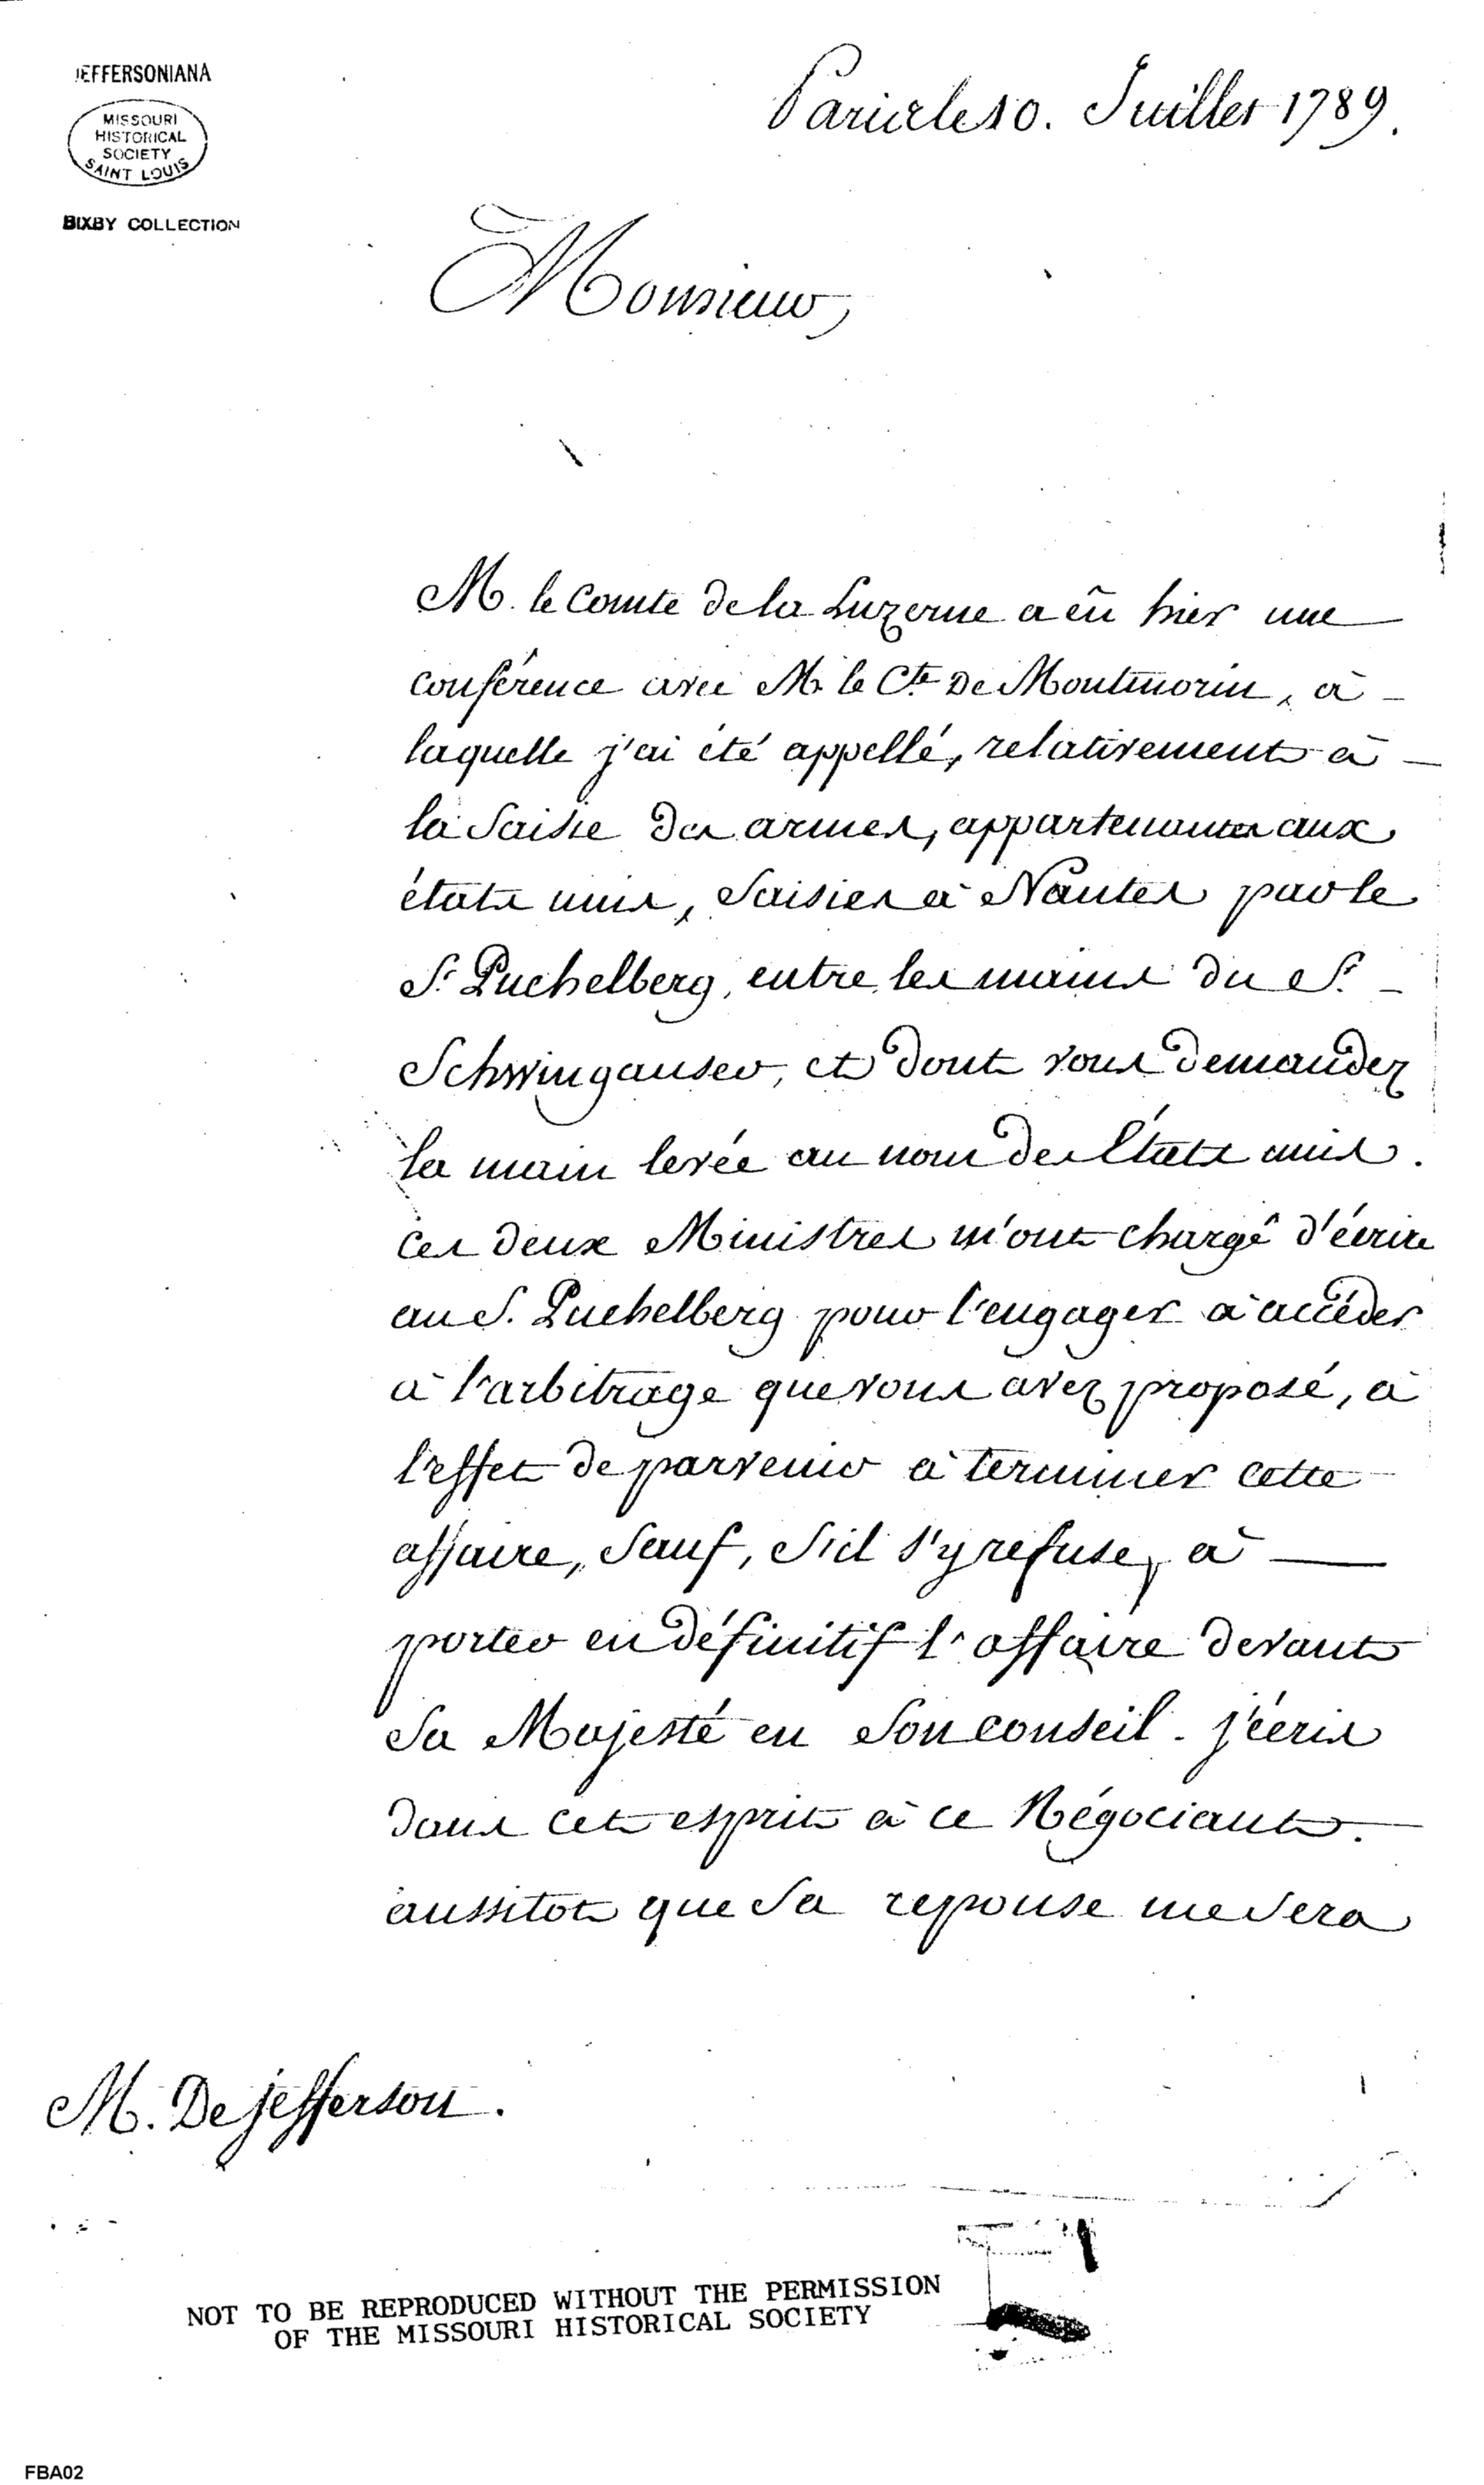 JEFFERSONIANA
MISSOURI
HISTORICAL
SOCIETY
SAINT LOUIS
BIXBY COLLECTION
Paris le 10. Juillet 1789.
Monsieur,
M. le Comte de la Luzerne a eû hier une
conférence avec M. le Cte De Montmorin, à
laquelle j'ai été appellé, relativement à
la Saisie des armes, appartenantes aux
états unis, Saisies à Nantes par le
Sr. Puchelberg, entre les mains du Sr.
Schwingauser, et dont vous demandez
la main levée au nom des Etats unis.
Ces deux Ministres m'ont chargé d'écrire
au S. Puchelberg pour l'engager à accéder
à l'arbitrage que vous avez proposé, à
l'effet de parvenir à terminer cette
affaire, Sauf, S'il s'y refuse, à
porter en définitif l'affaire devant
Sa Majesté en Son conseil. j'écris
dans cet esprit à ce Négociant.
aussitot que Sa reponse me Sera
M. De jefferson.
NOT TO BE REPRODUCED WITHOUT THE PERMISSION
OF THE MISSOURI HISTORICAL SOCIETY
FBA02